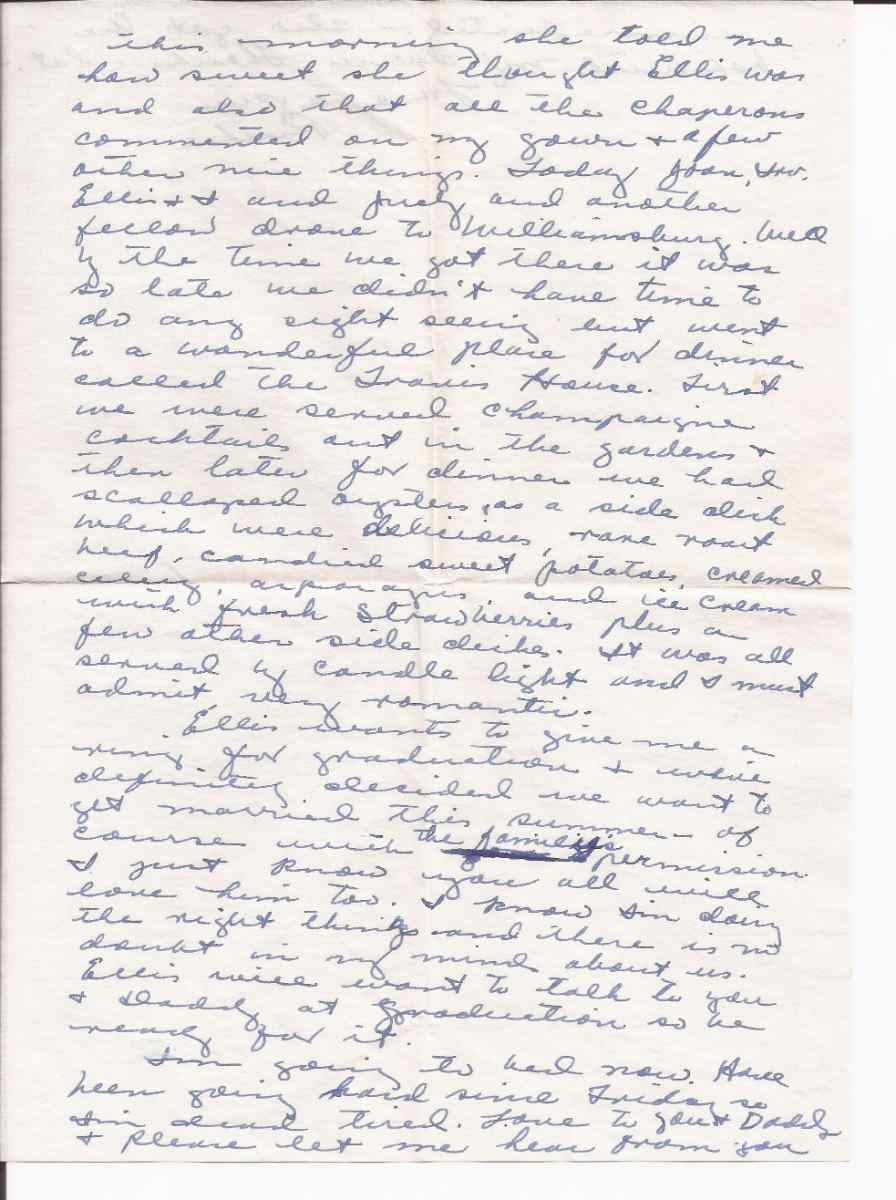 this morning she told me
how sweet she thought Ellis was
and also that all the chaperons
commented on my gown + a few
other nice things. Today Joan, Irv.
Ellis + I and Judy and another
fellow drove to Williamsburg. Well
by the time we got there it was
so late we didn't have time to
do any sight seeing but went
to a wonderful place for dinner
called the Travis House. First
we were served champaigne
cocktails out in the gardens +
then later for dinner we had
scalloped oysters, as a side dish
which were delicious, rare roast
beef, candied sweet potatoes, creamed
celery, asparagus, and ice cream
with fresh strawberries plus a
few other side dishes. It was all
served by candle light and I must
admit very romantic.
Ellis wants to give me a
ring for graduation + we've
definitely decided we want to
get married this summer - of
course with the family's permission.
I just know you all will
love him too. I know I'm doing
the right thing and there is no
doubt in my mind about us.
Ellis will want to talk to you
+ Daddy at graduation so be
ready for it.
I'm going to bed now. Have
been going hard since Friday so
I'm dead tired. Love to you + Daddy
+ please let me hear from you